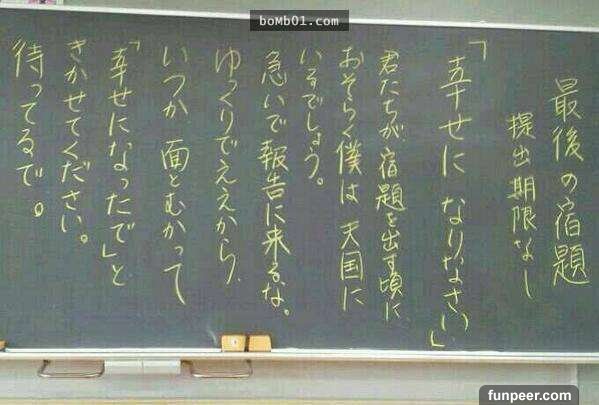 boMb01.com
最後の宿題
提出期限なし
「幸せになりなさい」
君たちが宿題を出す頃に
おそらく僕は天国に
いるでしょう。
急いで報告に来るな。
ゆっくりでええから、
いつか面とむかって
「幸せになったで」と
きかせてください。
待ってるで。
funpeer.com